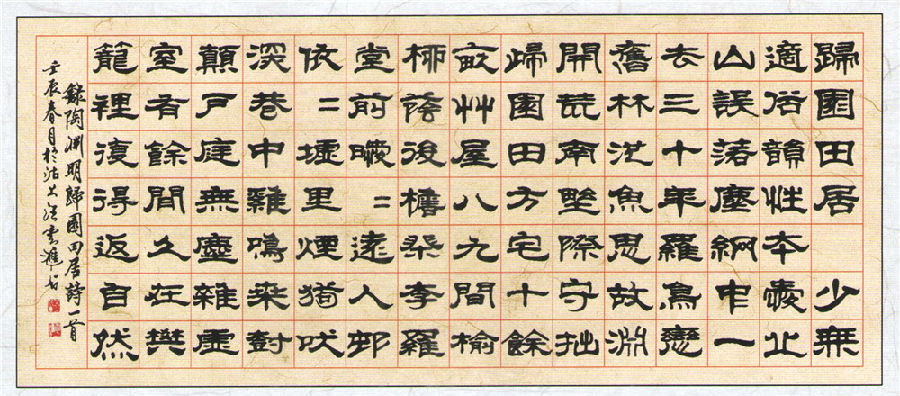 歸園田居　少無
適俗韻性本愛丘
山誤落塵網中一
去三十年羈鳥戀
舊林池魚思故淵
開荒南野際守拙
歸園田方宅十餘
畝艸屋八九間榆
柳蔭後檐桃李羅
堂前曖〻遠人邨
依〻墟里煙狗吠
深巷中雞鳴桑樹
顛戶庭無塵雜虛
室有餘閒久在樊
籠裡復得返自然
錄陶淵明歸園田居詩一首
壬辰春月於法大